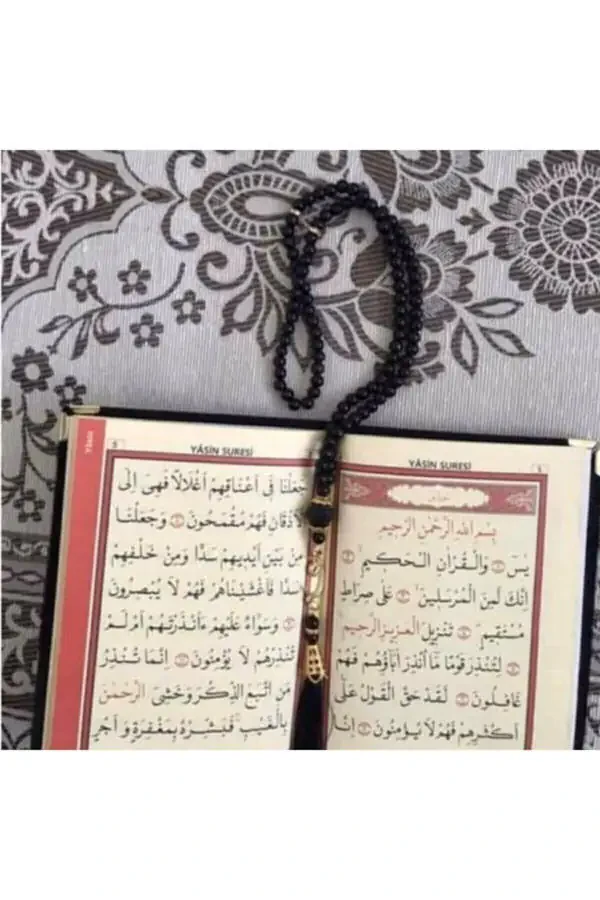 YÂSİN SURESİ
بِسْمِ اللهِ الرَّحْمٰنِ الرَّحِيمِ
يٰسٓ وَالْقُرْاٰنِ الْحَكِيمِ
اِنَّكَ لَمِنَ الْمُرْسَلِينَ عَلٰى صِرَاطٍ
مُسْتَقِيمٍ تَنْزِيلَ الْعَزِيزِ الرَّحِيمِ
لِتُنْذِرَ قَوْمًا مَٓا اُنْذِرَ اٰبَٓاؤُهُمْ فَهُمْ
غَافِلُونَ لَقَدْ حَقَّ الْقَوْلُ عَلٰٓى
اَكْثَرِهِمْ فَهُمْ لَا يُؤْمِنُونَ اِنَّا
YÂSİN SURESİ
جَعَلْنَا فِٓى اَعْنَاقِهِمْ اَغْلَالًا فَهِىَ اِلَى
الْاَذْقَانِ فَهُمْ مُقْمَحُونَ وَجَعَلْنَا
مِنْ بَيْنِ اَيْدِيهِمْ سَدًّا وَمِنْ خَلْفِهِمْ
سَدًّا فَاَغْشَيْنَاهُمْ فَهُمْ لَا يُبْصِرُونَ
وَسَوَٓاءٌ عَلَيْهِمْ ءَاَنْذَرْتَهُمْ اَمْ لَمْ
تُنْذِرْهُمْ لَا يُؤْمِنُونَ اِنَّمَا تُنْذِرُ
مَنِ اتَّبَعَ الذِّكْرَ وَخَشِىَ الرَّحْمٰنَ
بِالْغَيْبِ فَبَشِّرْهُ بِمَغْفِرَةٍ وَاَجْرٍ
YÂSİN